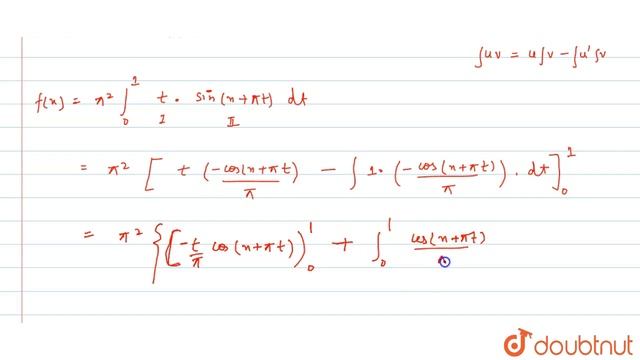 ∫uv = u∫v − ∫u'∫v
f(x) = π² ∫₀¹ t · sin(x+πt) dt
I II
= π² [ t (−cos(x+πt)/π) − ∫ 1 · (−cos(x+πt)/π) · dt ]₀¹
= π² { [ −t/π cos(x+πt) )₀¹ + ∫₀¹ cos(x+πt)/π
doubtnut